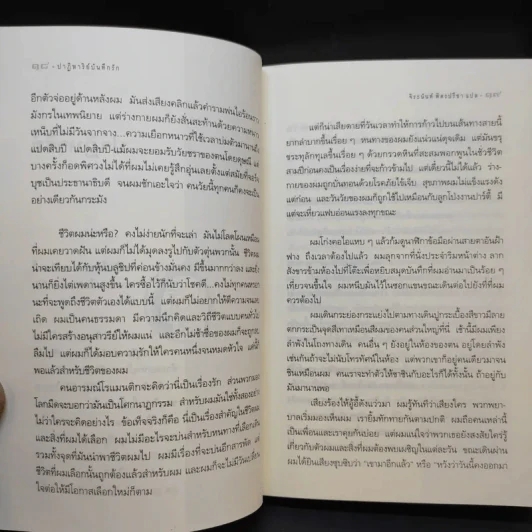 ๑๘ - ปาฏิหาริย์บันทึกรัก
อีกตัวจ่ออยู่ด้านหลังผม มันส่งเสียงคลิกแล้วคำรามพ่นไอร้อน
มังกรในเทพนิยาย แต่ร่างกายผมก็ยังสั่นสะท้านด้วยความหนาว
เหน็บที่ไม่มีวันจากจาง...ความเยือกหนาวที่ใช้เวลาบ่มตัวมานานถึง
แปดสิบปี แปดสิบปี...แม้ผมจะยอมรับวัยชราของตนโดยดุษณี
บางครั้งก็อดพิศวงไม่ได้ที่ผมไม่เคยรู้สึกอุ่นเลยตั้งแต่สมัยที่จอร์จ
บุชเป็นประธานาธิบดี จนผมชักเอะใจว่า คนวัยนี้ทุกคนก็คงจะเป็น
อย่างเดียวกันกระมัง
ชีวิตผมน่ะหรือ? คงไม่ง่ายนักที่จะเล่า มันไม่โลดโผนเหมือน
ที่ผมเคยวาดฝัน แต่ผมก็ไม่ได้มุดลงรูไปกับตัวตุ่นพวกนั้น ชีวิตผม
น่าจะเทียบได้กับหุ้นบลูชิปที่ค่อนข้างมั่นคง มีขึ้นมากกว่าลง และ
นานก็ยังไต่เพดานสูงขึ้น ใครซื้อไว้ก็นับว่าโชคดี...คงไม่ทุกคนหรอก
นะที่จะพูดถึงชีวิตตัวเองได้แบบนี้ แต่ผมก็ไม่อยากให้ตีความผิด
เถิด ผมเป็นคนธรรมดา มีความนึกคิดและวิถีชีวิตแบบคนทั่วไป
ไม่มีใครสร้างอนุสาวรีย์ให้ผมแน่ และอีกไม่ช้าชื่อของผมก็จะถูก
ลืมไป แต่ผมก็ได้มอบความรักให้ใครคนหนึ่งจนหมดหัวใจ
พอแล้วสำหรับชีวิตของผม
คนอารมณ์โรแมนติกจะคิดว่านี่เป็นเรื่องรัก ส่วนพวกมอง
โลกมืดจะบอกว่ามันเป็นโศกนาฏกรรม สำหรับผมมันใช่ทั้งสองอย่าง
ไม่ว่าใครจะคิดอย่างไร ข้อเท็จจริงก็คือ นี่เป็นเรื่องสำคัญในชีวิตผม
และสิ่งที่ผมได้เลือก ผมไม่มีอะไรจะบ่นสำหรับหนทางที่เลือกเดิน
รวมทั้งจุดที่มันนำพาชีวิตผมไป ผมมีเรื่องที่จะบ่นอีกสารพัด แต่
ชีวิตที่ผมเลือกนั้นถูกต้องแล้วสำหรับผม และผมก็จะไม่มีวันเปลี่ยน
ใจต่อให้มีโอกาสเลือกใหม่ก็ตาม
จิระนันท์ พิตรปรีชา แปล - ๑๙
แต่ก็น่าเสียดายที่วันเวลาทำให้การก้าวไปบนเส้นทางสายนี้
ยากลำบากขึ้นเรื่อย ๆ หนทางของผมยังแน่วแน่ดุจเดิม แต่มันขรุ
ขระทุลักทุเลขึ้นเรื่อย ๆ ด้วยกรวดหินที่สะสมพอกพูนในชั่วชีวิต
สามปีก่อนผมยังเป็นเรื่องง่ายที่จะก้าวข้ามไป แต่เดี๋ยวนี้ไม่ได้แล้ว ร่าง
กายของผมถูกบั่นทอนด้วยโรคภัยไข้เจ็บ สุขภาพผมไม่แข็งแรงดัง
แต่ก่อน และวันวัยของผมก็ถูกใช้ไปเหมือนกับลูกโป่งงานปาร์ตี้ มี
แต่จะเหี่ยวแฟบอ่อนแรงลงทุกขณะ
ผมโก่งคอไอแหบ ๆ แล้วก้มดูนาฬิกาข้อมือผ่านสายตาอันฝ้า
ฟาง ถึงเวลาต้องไปแล้ว ผมลุกจากที่นั่งประจำริมหน้าต่าง ลาก
สังขารข้ามห้องไปที่โต๊ะเพื่อหยิบสมุดบันทึกที่ผมอ่านมาเป็นร้อย ๆ
เที่ยวจนขึ้นใจ ผมหนีบมันไว้ในซอกแขนขณะเดินต่อไปยังที่ที่ผม
ควรต้องไป
ผมเดินกระย่องกระแย่งไปตามทางเดินปูกระเบื้องสีขาวมีลาย
ตกกระเป็นจุดสีเทาเหมือนสีผมของคนส่วนใหญ่ที่นี่ เช้านี้มีผมเพียง
ลำพังในโถงทางเดิน คนอื่น ๆ ยังอยู่ในห้องของตน อยู่โดยลำพัง
เช่นกันถ้าจะไม่นับโทรทัศน์ในห้อง แต่พวกเขาก็อยู่คนเดียวมาจน
ชินเหมือนผม คนเราจะทำตัวให้ชาชินกับอะไรก็ได้ทั้งนั้น ถ้าอยู่กับ
มันมานานพอ
เสียงร้องไห้อู้อี้ดังแว่วมา ผมรู้ทันทีว่าเสียงใคร พวกพยา-
บาลเริ่มมองเห็นผม เรายิ้มทักทายกันตามปกติ ผมถือคนเหล่านี้
เป็นเพื่อนและเราคุยกันบ่อย แต่ผมแน่ใจว่าพวกเธอยังสงสัยใคร่รู้
เกี่ยวกับตัวผมและสิ่งที่ผมต้องพบเผชิญในแต่ละวัน ขณะเดินผ่าน
ผมได้ยินเสียงซุบซิบว่า "เขามาอีกแล้ว" หรือ "หวังว่าวันนี้คงออกมา